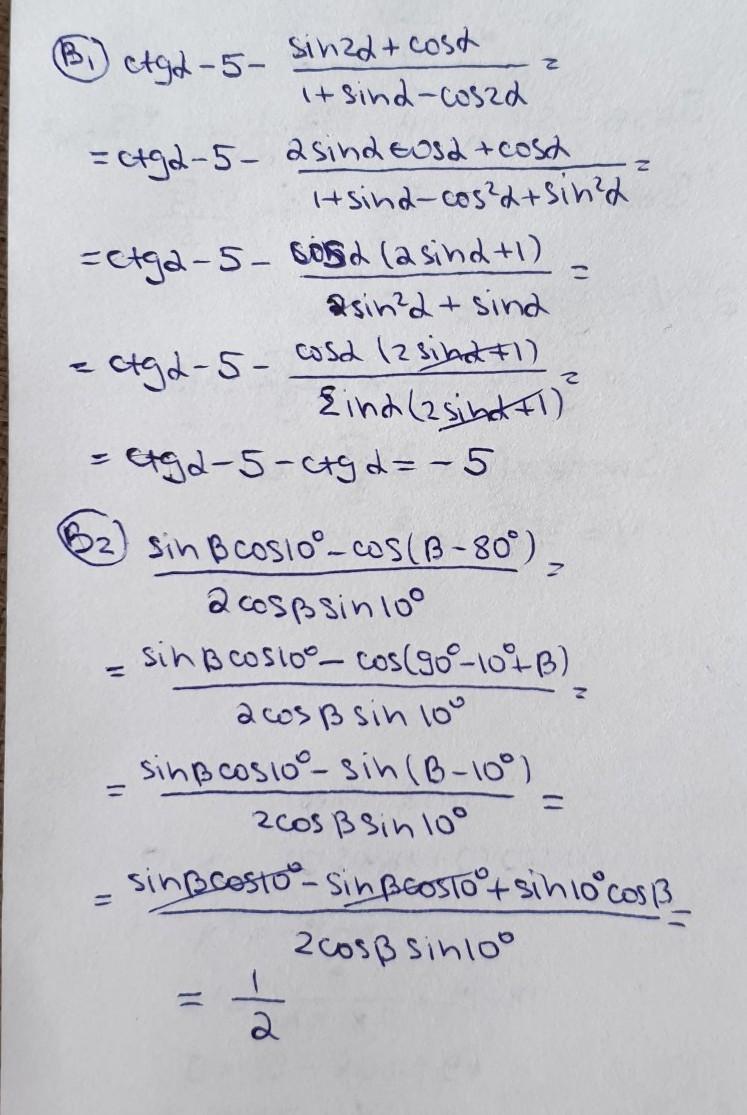 B1) ctgα - 5 - (sin2α + cosα)/(1 + sinα - cos2α) =
= ctgα - 5 - (2sinα cosα + cosα)/(1 + sinα - cos²α + sin²α) =
= ctgα - 5 - (cosα (2sinα + 1))/(2sin²α + sinα) =
= ctgα - 5 - (cosα (2sinα + 1))/(sinα (2sinα + 1)) =
= ctgα - 5 - ctgα = - 5
B2) (sinβ cos10° - cos(β - 80°))/(2cosβ sin10°) =
= (sinβ cos10° - cos(90° - 10° + β))/(2cosβ sin10°) =
= (sinβ cos10° - sin(β - 10°))/(2cosβ sin10°) =
= (sinβ cos10° - sinβ cos10° + sin10° cosβ)/(2cosβ sin10°) =
= 1/2